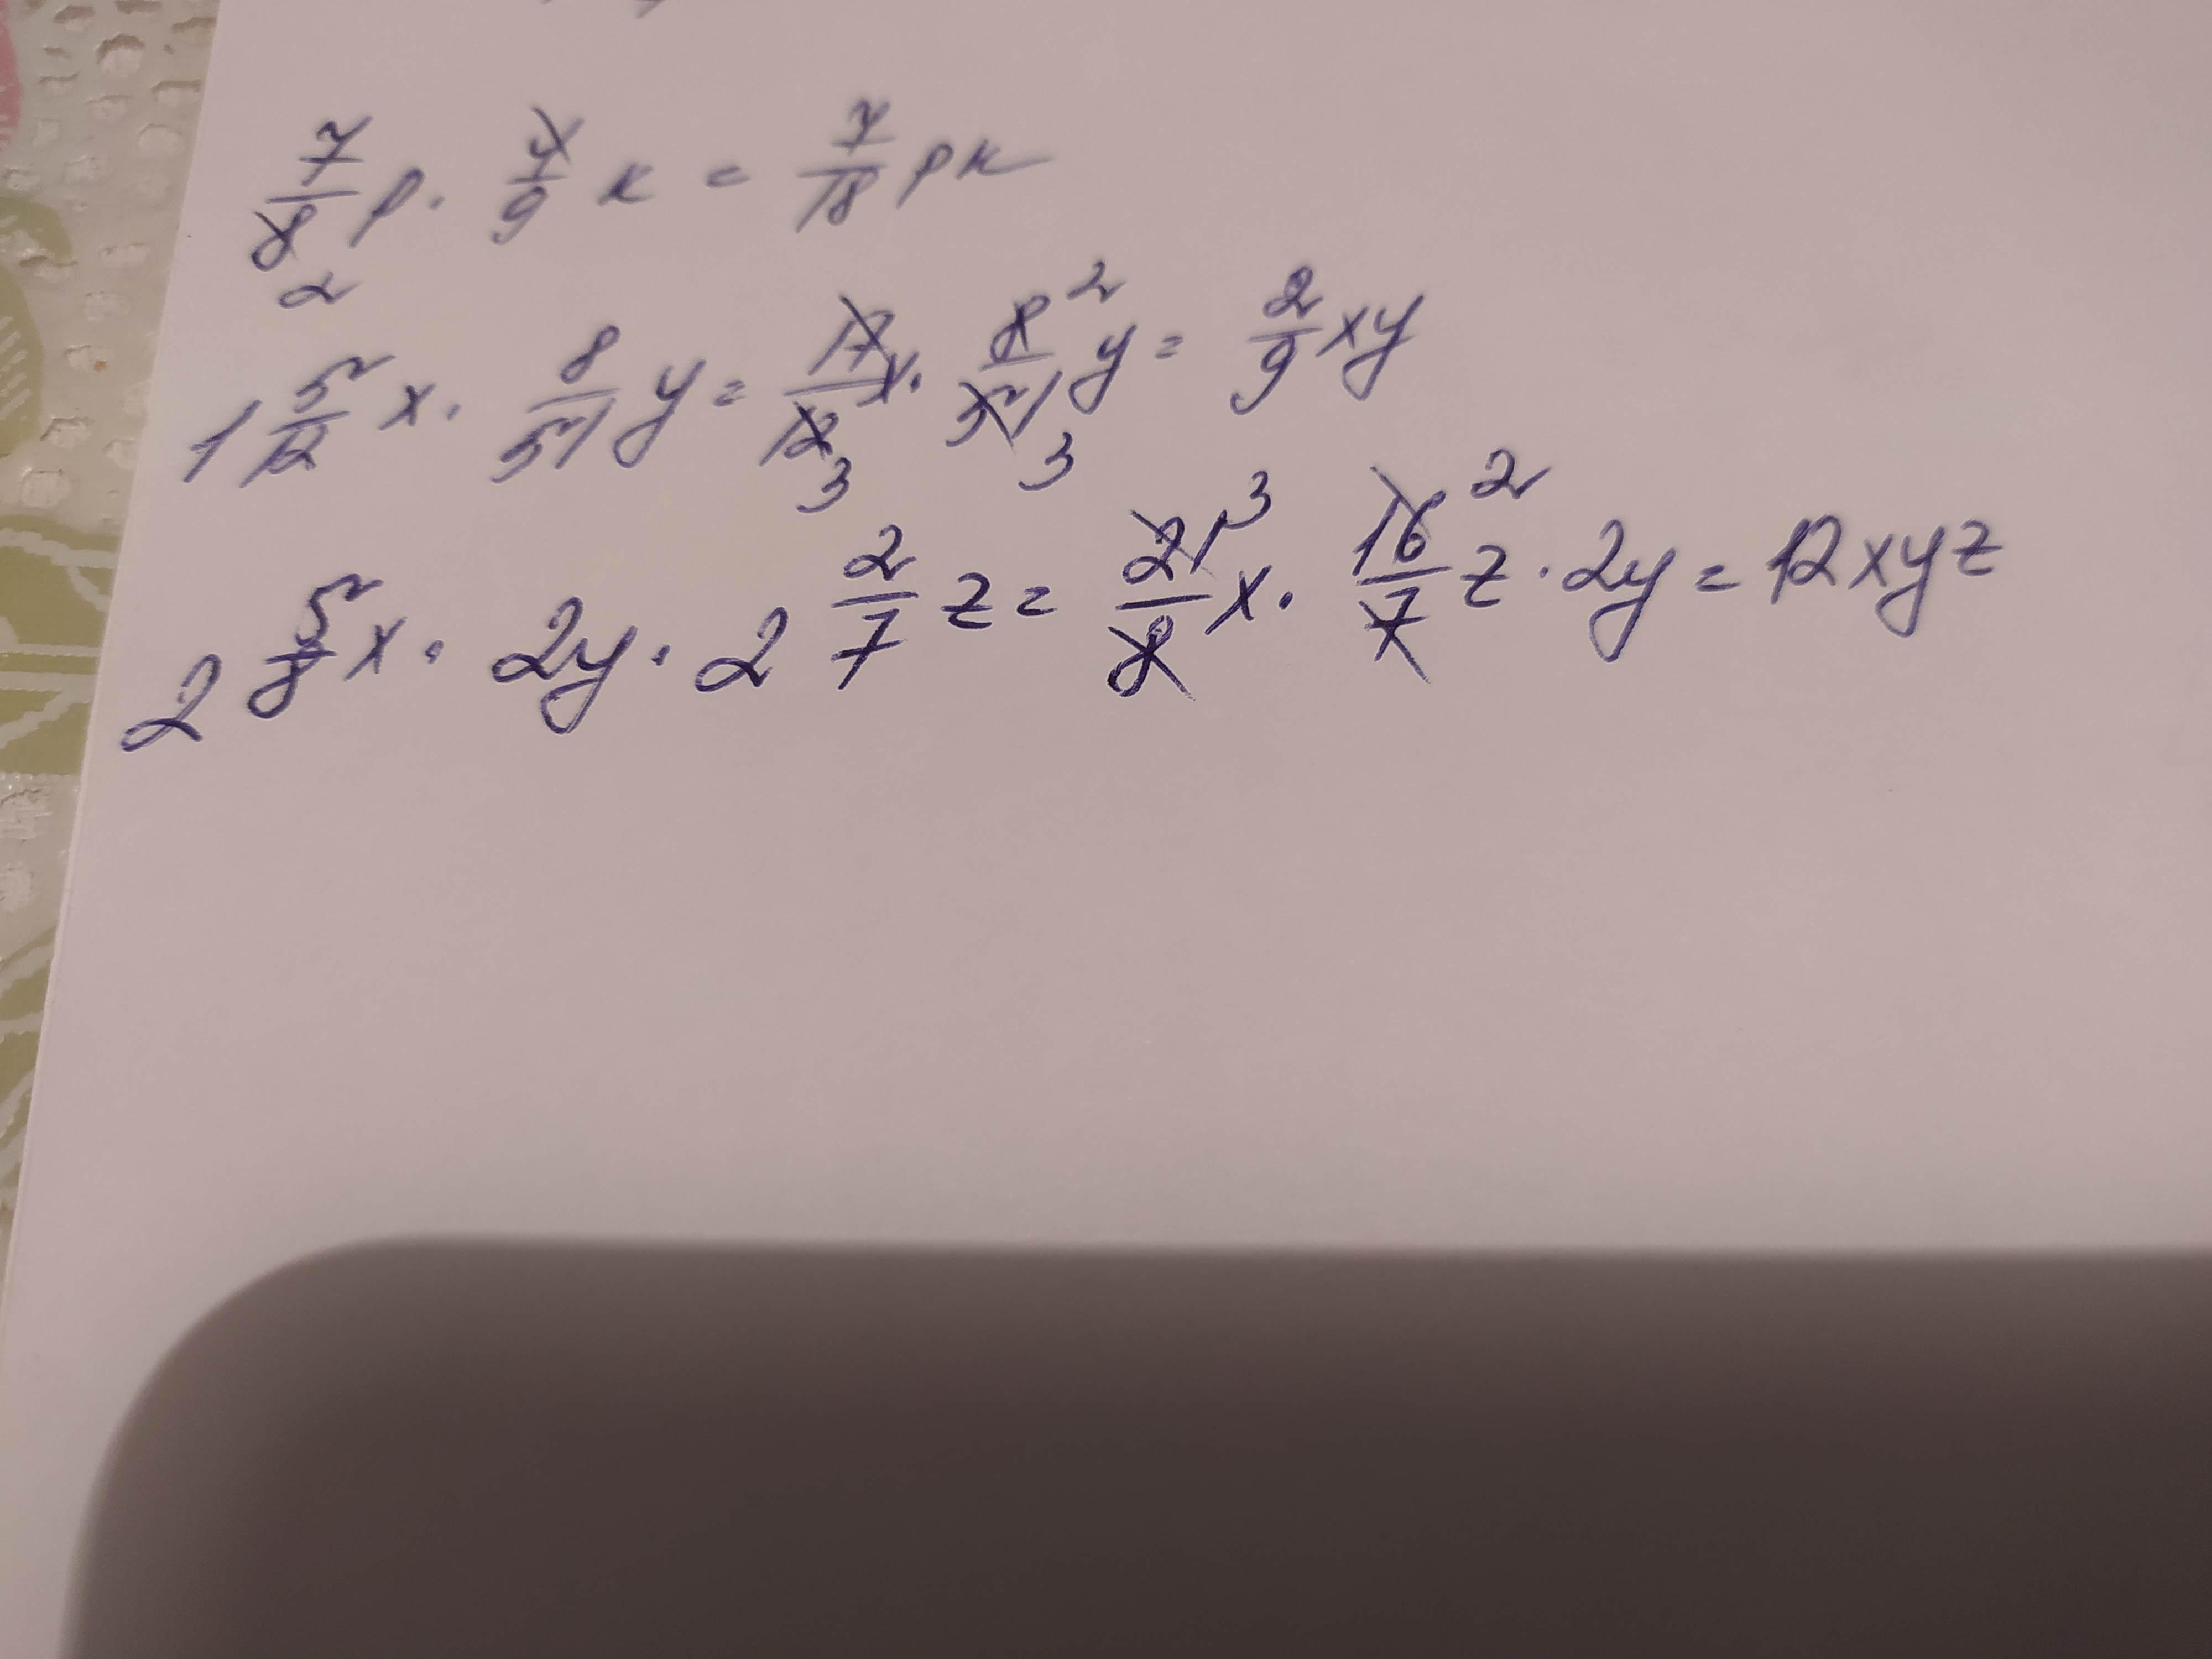 7/8 p · 4/9 к = 7/18 pк
2
1 5/12 x · 8/51 y = 17/12 x · 8/51 y = 2/9 xy
3 3 2
2 5/8 x · 2y · 2 2/7 z = 21/8 x · 16/7 z · 2y = 12xyz
3 2